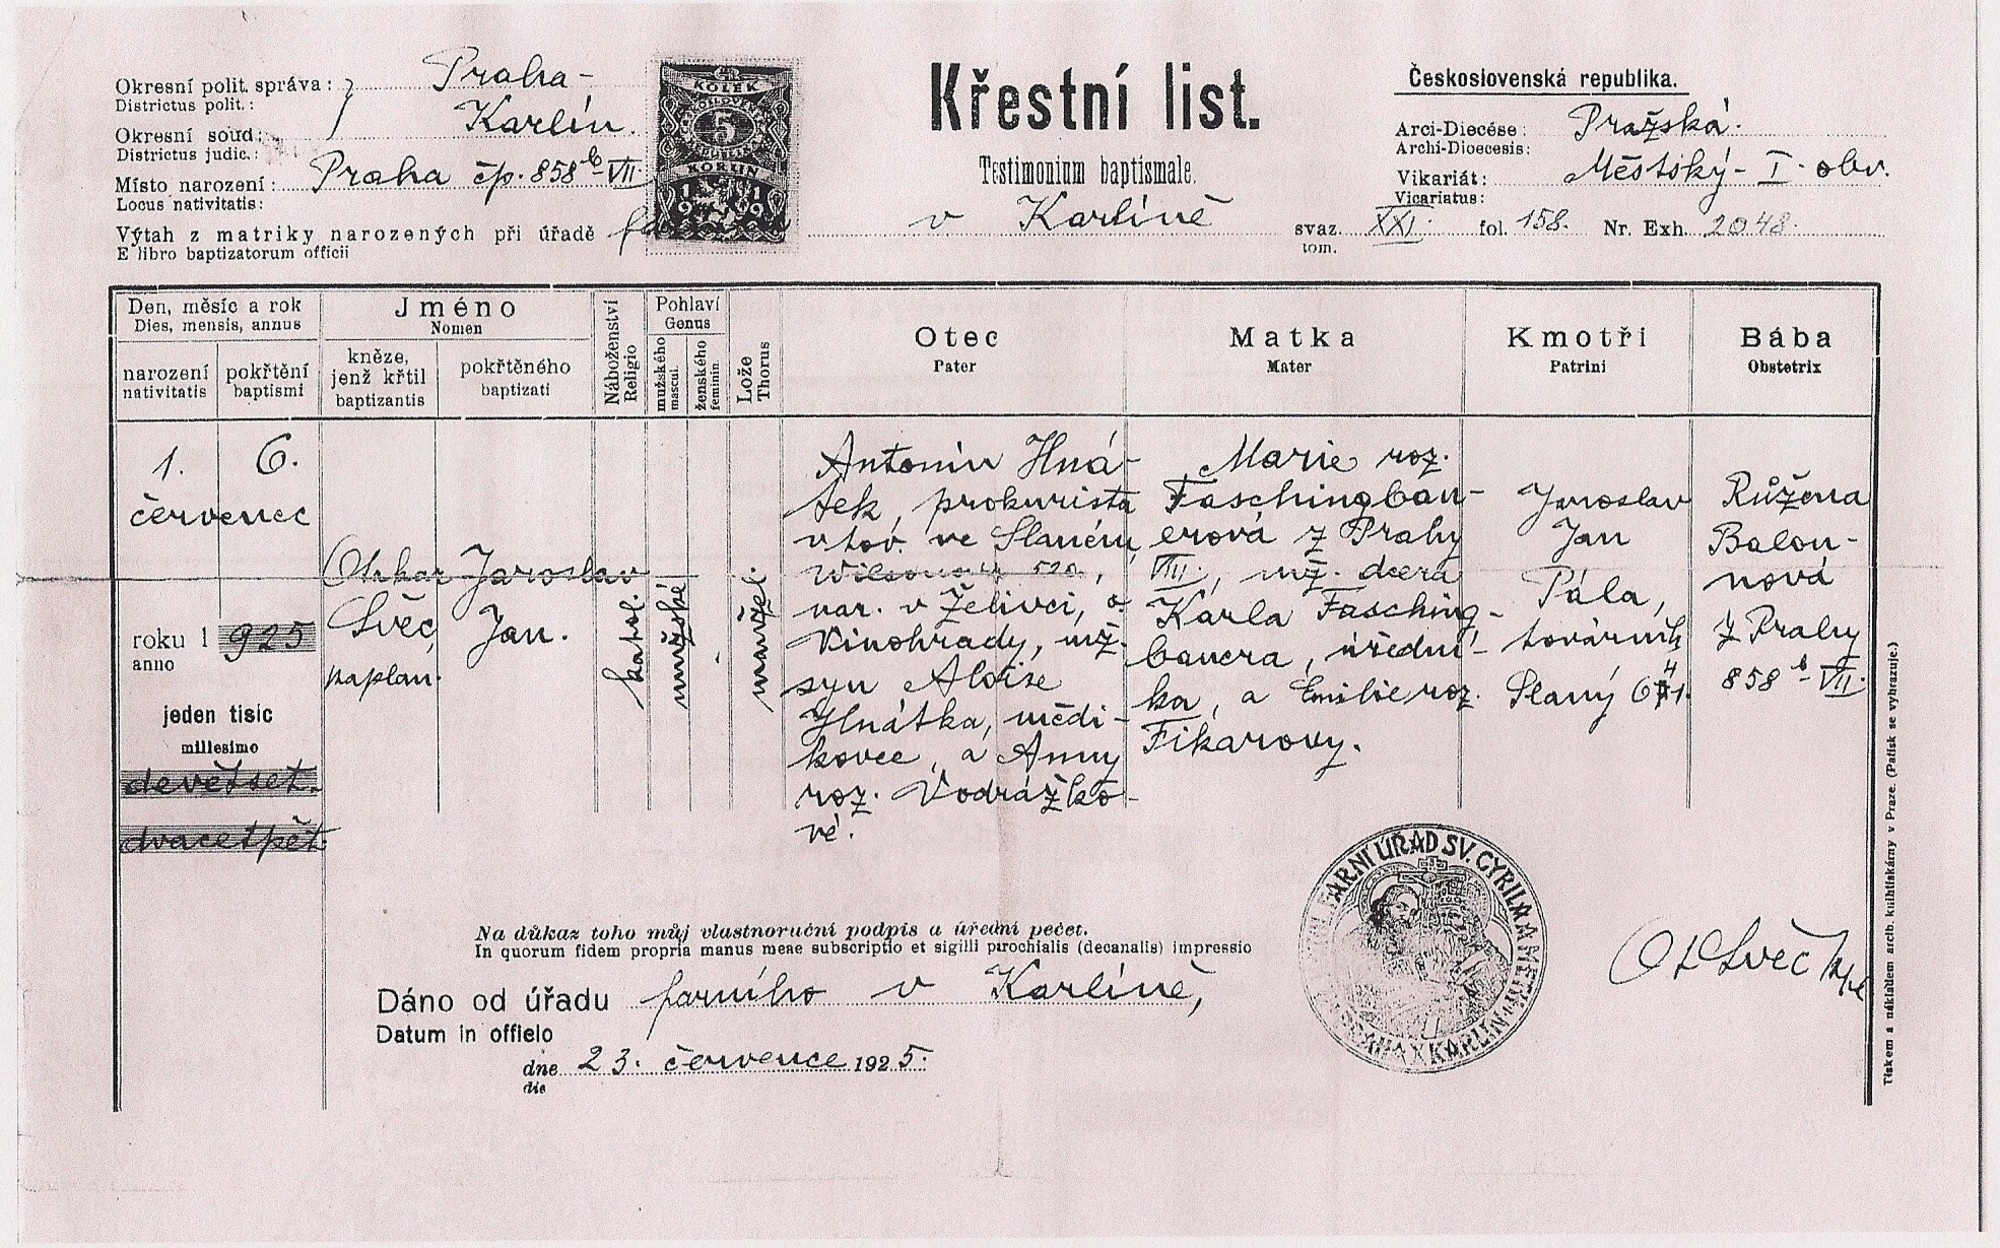 Okresní polit. správa: Praha-
Districtus polit.:
Okresní soud: Karlín.
Districtus judic.:
Místo narození: Praha čp. 858 b VII.
Locus nativitatis:
Výtah z matriky narozených při úřadě
E libro baptizatorum officii
KOLEK
5
KORUN
1919
Křestní list.
Testimonium baptismale.
v Karlíně
Československá republika.
Arci-Diecése: Pražská.
Archi-Dioecesis:
Vikariát: Městský - I. obv.
Vicariatus:
svaz. XXI. fol. 158. Nr. Exh. 2048.
tom.
Den, měsíc a rok
Dies, mensis, annus
narození
nativitatis
pokřtění
baptismi
Jméno
Nomen
kněze,
jenž křtil
baptizantis
pokřtěného
baptizati
Náboženství
Religio
Pohlaví
Genus
mužského
mascul.
ženského
feminin.
Lože
Thorus
Otec
Pater
Matka
Mater
Kmotři
Patrini
Bába
Obstetrix
1. 6.
červenec
roku 1925
anno
jeden tisíc
millesimo
devětset.
dvacetpět.
Otakar
Švéc,
kaplan.
Jaroslav
Jan.
katol.
mužské
manžel.
Antonín Hná-
tek, prokurista
v tov. ve Slaném,
Wilsonova 520,
nar. v Želivci, o.
Vinohrady, mž.
syn Aloise
Hnátka, mědi-
kovce, a Anny
roz. Vodrážko-
vé.
Marie roz.
Faschingbau-
erová z Prahy
VIII., mž. dcera
Karla Fasching-
bauera, úřední-
ka, a Emilie roz.
Fikarovy.
Jaroslav
Jan
Pála,
továrník
Slaný
Růžena
Balou-
nová
z Prahy
858 b VII.
Na důkaz toho můj vlastnoruční podpis a úřední pečeť.
In quorum fidem propria manus meae subscriptio et sigilli parochialis (decanalis) impressio
Dáno od úřadu farního v Karlíně,
Datum in officio
dne 23. července 1925.
die
FARNÍ ÚŘAD SV. CYRILA A METH. PRAHA X KARLÍN
Ot Švéc
Tiskem a nákladem arcib. knihtiskárny v Praze. (Patisk se vyhrazuje.)